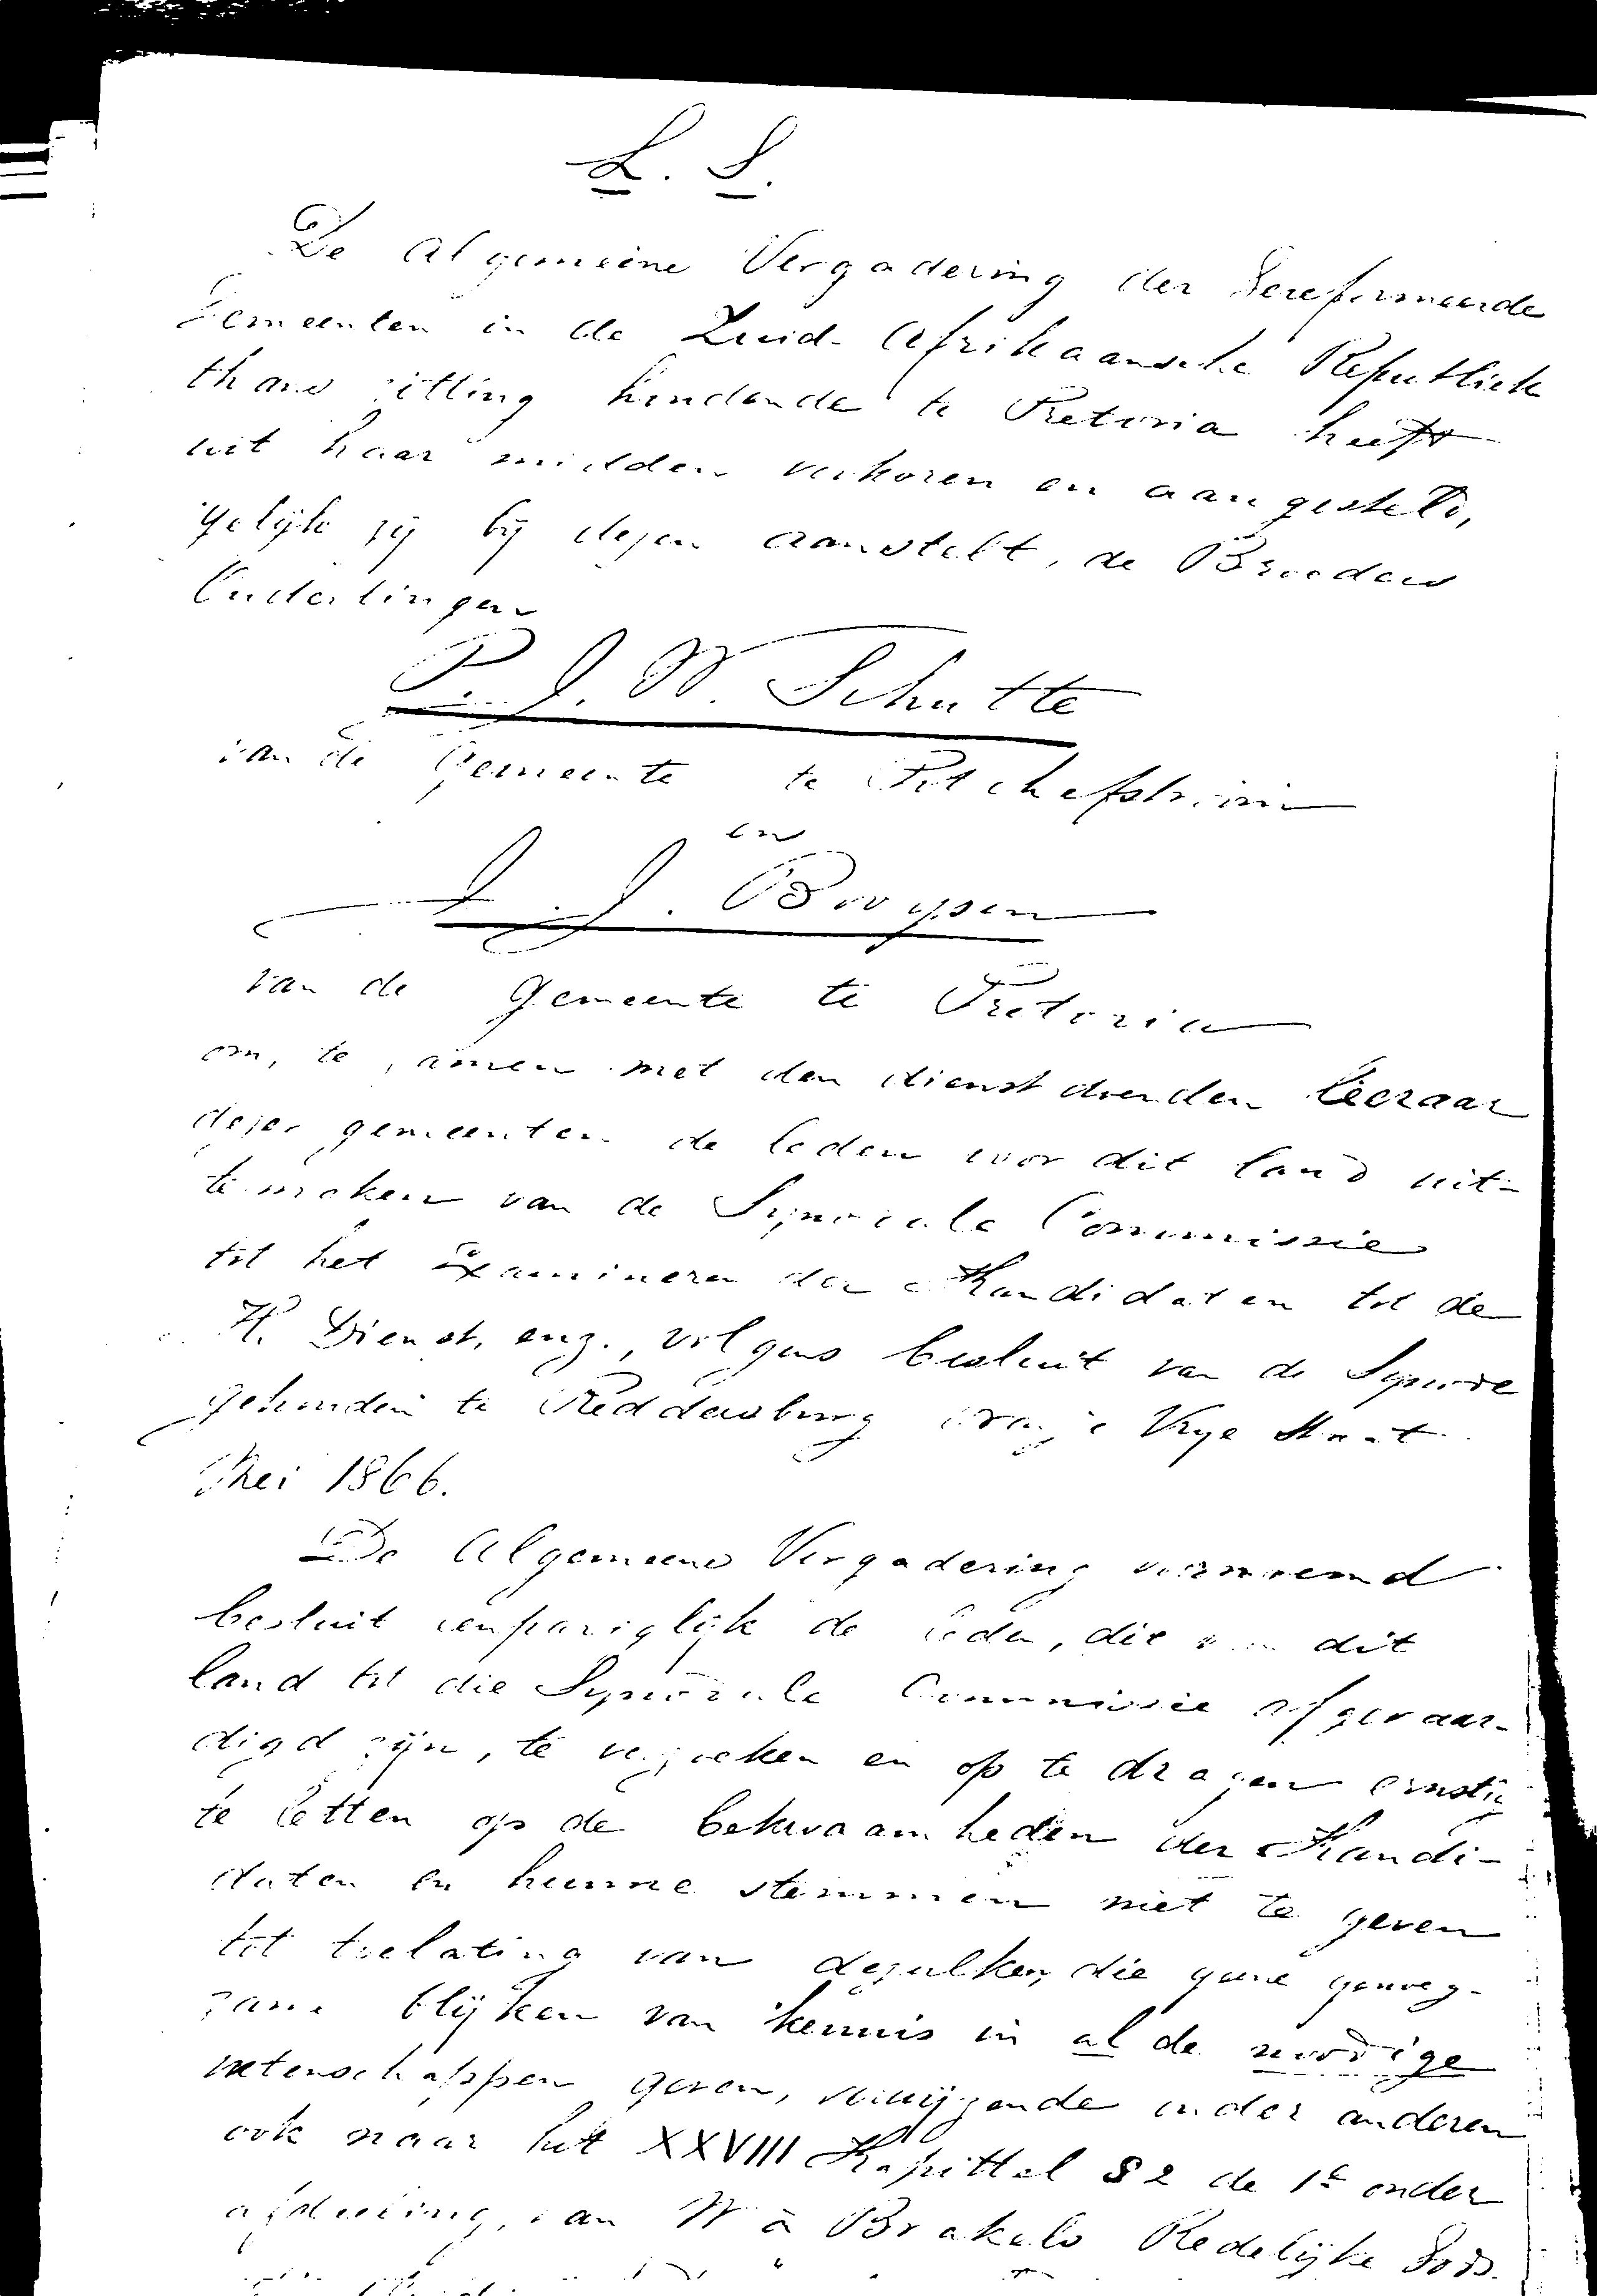 L. S.
De Algemeene Vergadering der Gereformeerde
Gemeenten in de Zuid-Afrikaansche Republiek
thans zitting houdende te Pretoria heeft
uit haar midden verkoren en aangesteld,
gelijk zij bij dezen aanstelt, de Broeders
Ouderlingen
P. J. W. Schutte
van de Gemeente te Potchefstroom
en
J. J. Booysen
van de Gemeente te Pretoria
om, te zamen met den dienstdoenden Leeraar
dezer gemeenten de leden voor dit land uit-
te maken van de Synodale Commissie
tot het Examineren der Kandidaten tot de
H. Dienst, enz., volgens besluit van de Synode
gehouden te Reddersburg Oranje Vrye Staat
Mei 1866.
De Algemeene Vergadering voornoemd
besluit eenpariglijk de leden, die van dit
land tot die Synodale Commissie afgevaar-
digd zijn, te verzoeken en op te dragen ernstig
te letten op de bekwaamheden der Kandi-
daten en hunne stemmen niet te geven
tot toelating van dezulken, die geene genoeg-
zame blijken van kennis in al de noodige
wetenschappen geven, verwijzende onder anderen
ook naar het XXVIII Kapittel § 2 de 1e onder
afdeeling, van W à Brakels Redelijke Gods-